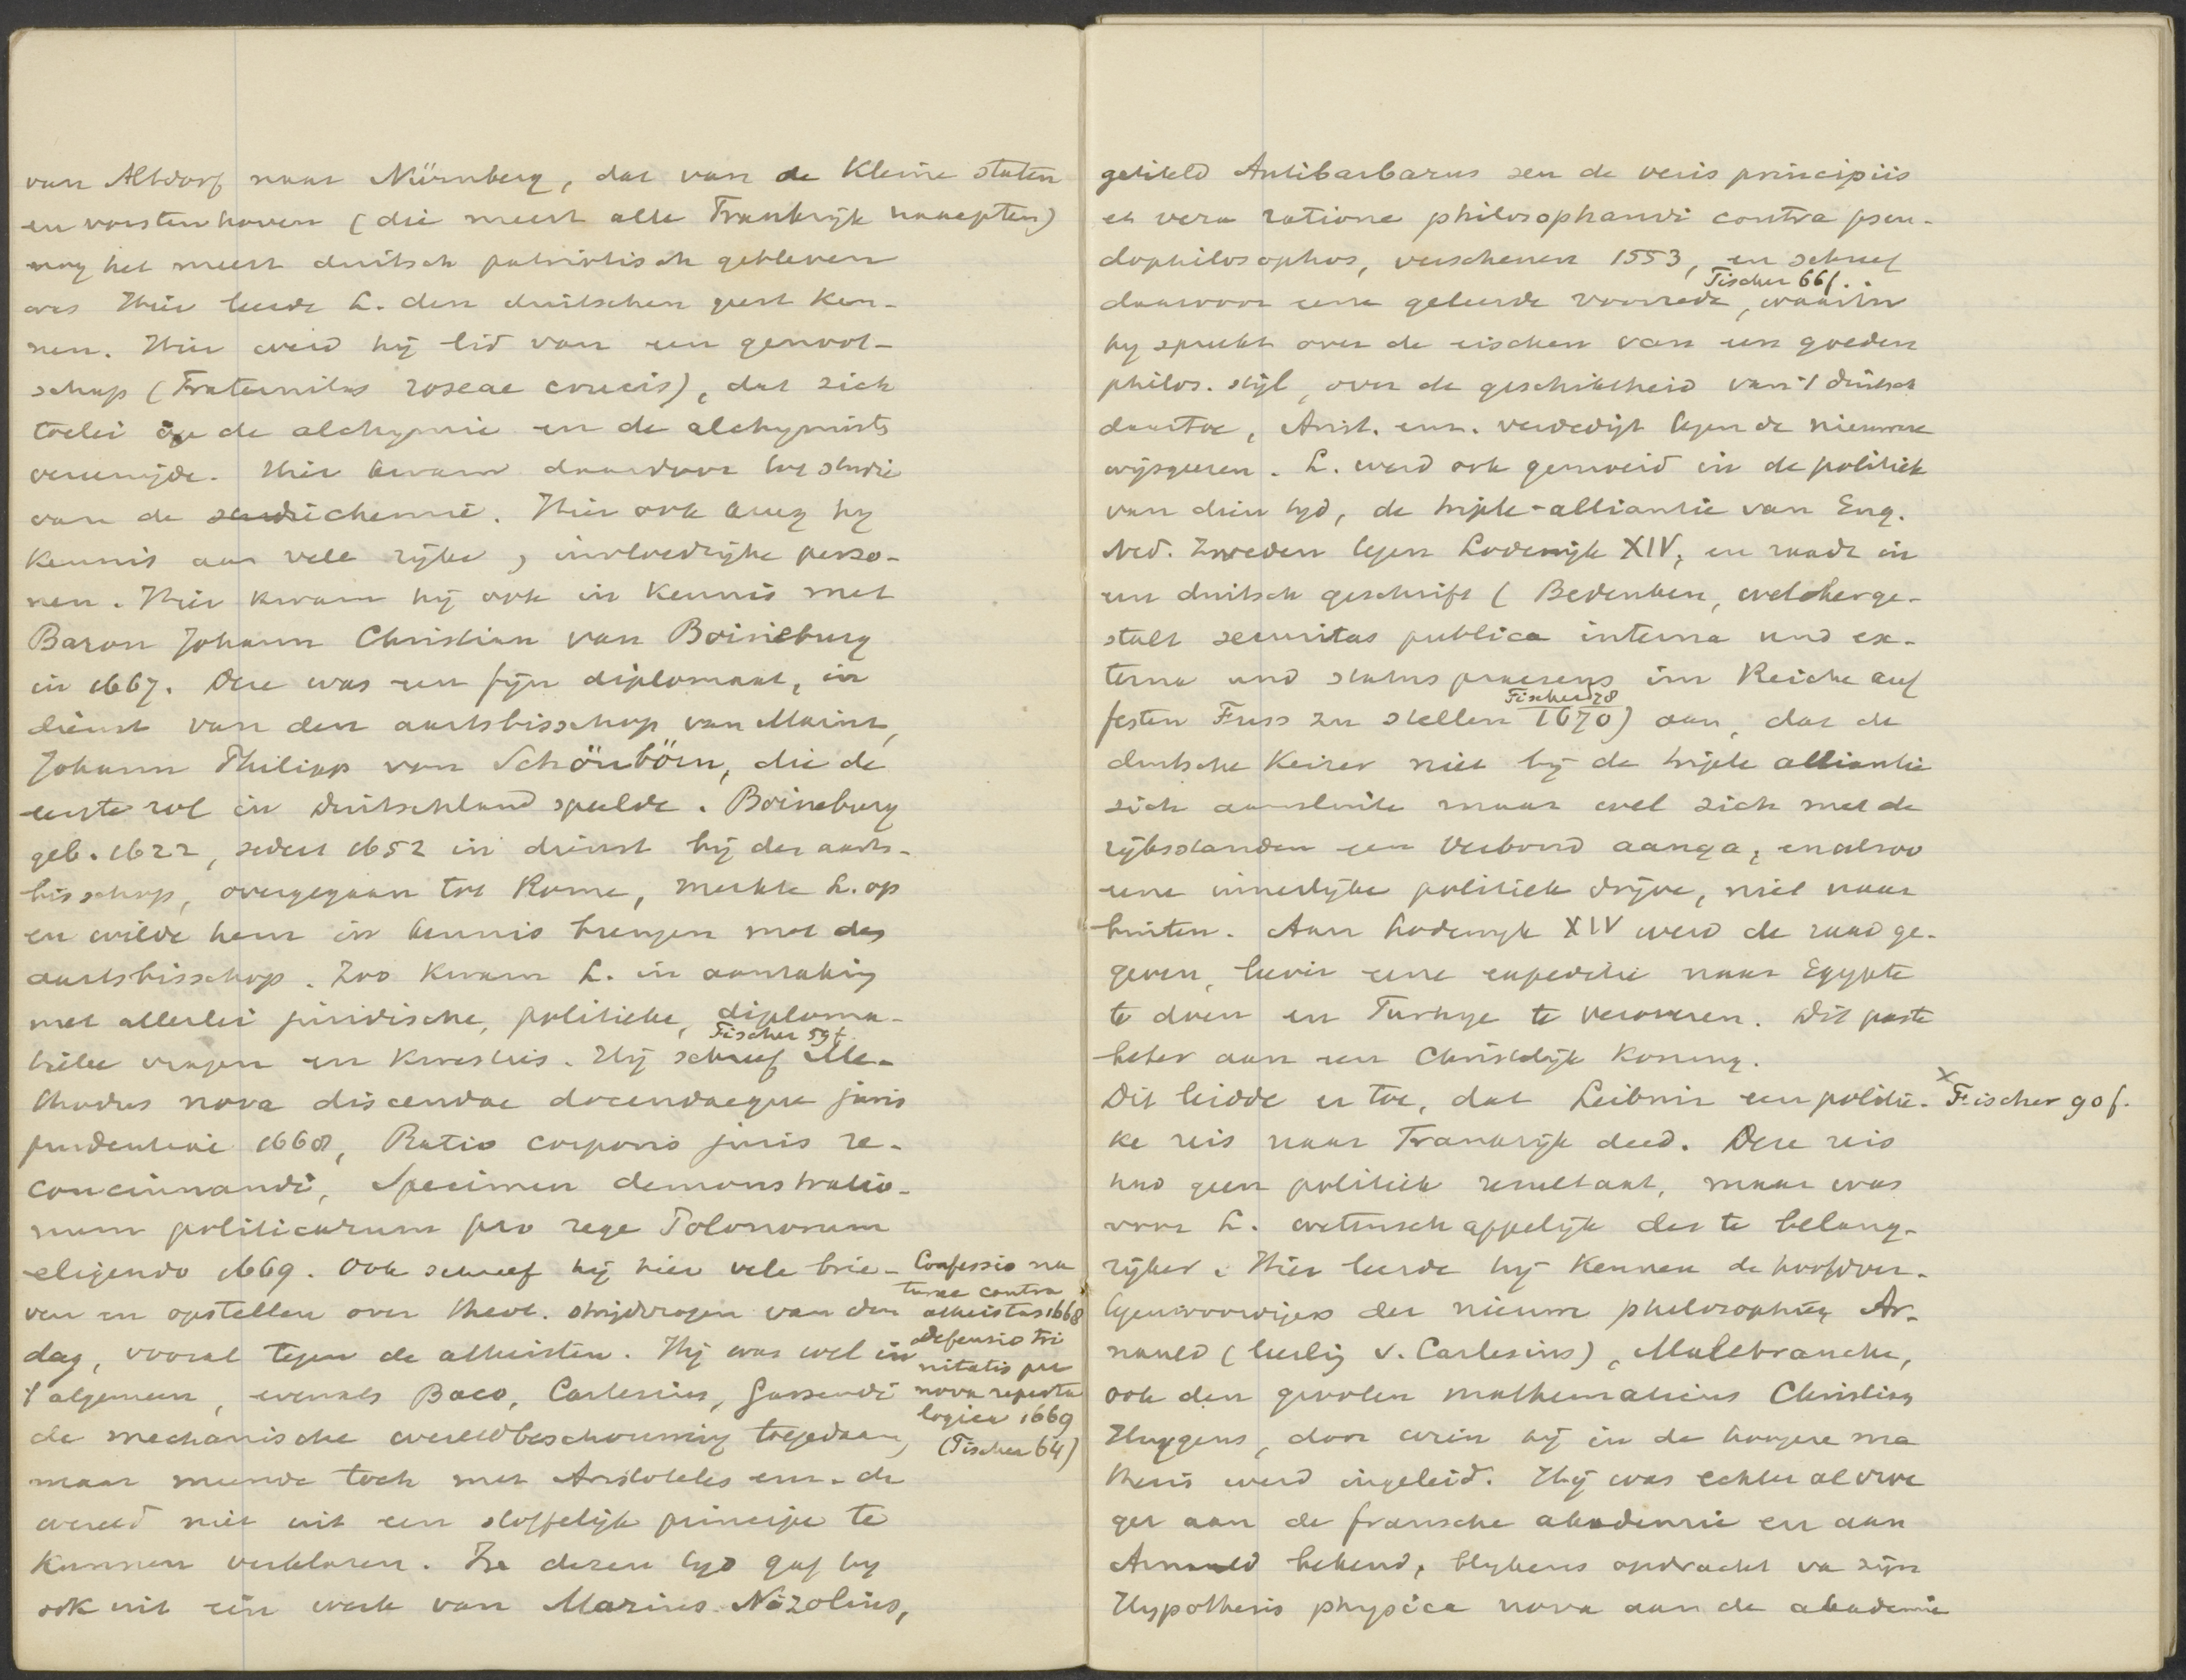 van Altdorf naar Nürnberg, dat van de Kleine staten
en vorstenhoven (die meest alle Frankrijk naaepten)
nog het meest duitsch patriotisch gebleven
was Hier leerde L. den duitschen geest ken-
nen. Hier werd hij lid van een genoot-
schap (Fraternitas roseae crucis), dat zich
toelei op de alchymie en de alchymists
vereenigde. Hier kwam daardoor tot studie
van de chemie. Hier ook kreeg hy
kennis aan vele rijke, invloedrijke perso-
nen. Hier kwam hij ook in Kennis met
Baron Johann Christian van Boineburg
in 1667. Deze was een fijn diplomaat, in
dienst van den aartsbisschop van Mainz,
Johann Philipp von Schönbörn, die de
eerste rol in Duitschland speelde. Boineburg
geb. 1622, sedert 1652 in dienst bij den aarts-
bisschop, overgegaan tot Rome, merkte L. op
en wilde hem in kennis brengen met den
aartsbisschop. Zoo kwam L. in aanraking
met allerlei juridische, politieke, diploma-
Fischer 59f.
tieke vragen en kwesties. Hij schreef Me-
thodus nova discendae docendaeque juris
prudentiae 1668, Ratio corporis juris re-
concinnandi, Specimen demonstratio-
num politicarum pro rege Polonorum
eligendo 1669. Ook schreef hij hier vele brie-
ven en opstellen over theol. strijdvragen van den
dag, vooral tegen de atheisten. Hij was wel in
't algemeen, evenals Baco, Cartesius, Gassendi
de mechanische wereldbeschouwing toegedaan,
maar meende toch met Aristoteles enz. de
wereld niet uit een stoffelijk principe te
kunnen verklaren. In dezen tijd gaf hy
ook uit een werk van Marius Nizolius,
Confessio na
turae contra
atheistas 1668
Defensio tri
nitatis per
nova reperta
logica 1669
(Fischer 64)
getiteld Antibarbarus seu de veris principiis
et vera ratione philosophandi contra pseu-
dophilosophos, verschenen 1553, en schreef
Fischer 66f.
daarvoor eene geleerde voorrede, waarin
hy spreekt over de eischen van een goeden
philos. stijl, over de geschiktheid van 't duitsch
daartoe, Arist. enz. verdedigt tegen de nieuwere
wijsgeeren. L. werd ook gemoeid in de politiek
van dien tyd, de triple-alliantie van Eng.
Ned. Zweden tegen Lodewijk XIV, en raadt in
een duitsch geschrift (Bedenken, welcherge-
stalt securitas publica interna und ex-
terna und status praesens im Reiche auf
Fischer 78
festen Fuss zu stellen 1670) aan, dat de
duitsche Keizer niet bij de triple alliantie
zich aansluite maar wel zich met de
rijksstanden een verbond aanga, en alzoo
eene innerlijke politiek drijve, niet naar
buiten. Aan Lodewijk XIV werd de raad ge-
geven, liever eene expeditie naar Egypte
te doen en Turkye te veroveren. Dit paste
beter aan een Christelijk Koning.
Dit leidde er toe, dat Leibniz een politie- x Fischer 90f.
ke reis naar Frankrijk deed. Deze reis
had geen politiek resultaat, maar was
voor L. wetenschappelijk des te belang-
rijker. Hier leerde hij kennen de hoofdver-
tegenwoordigers der nieuwe philosophie, Ar-
nauld (leerling v. Cartesius), Malebranche,
ook den grooten mathematicus Christian
Huygens, door wien hij in de hoogere ma
thesis werd ingeleid. Hij was echter al vroe
ger aan de fransche akademie en aan
Arnauld bekend, blykens opdracht va zijn
Hypothesis physica nova aan de akademie